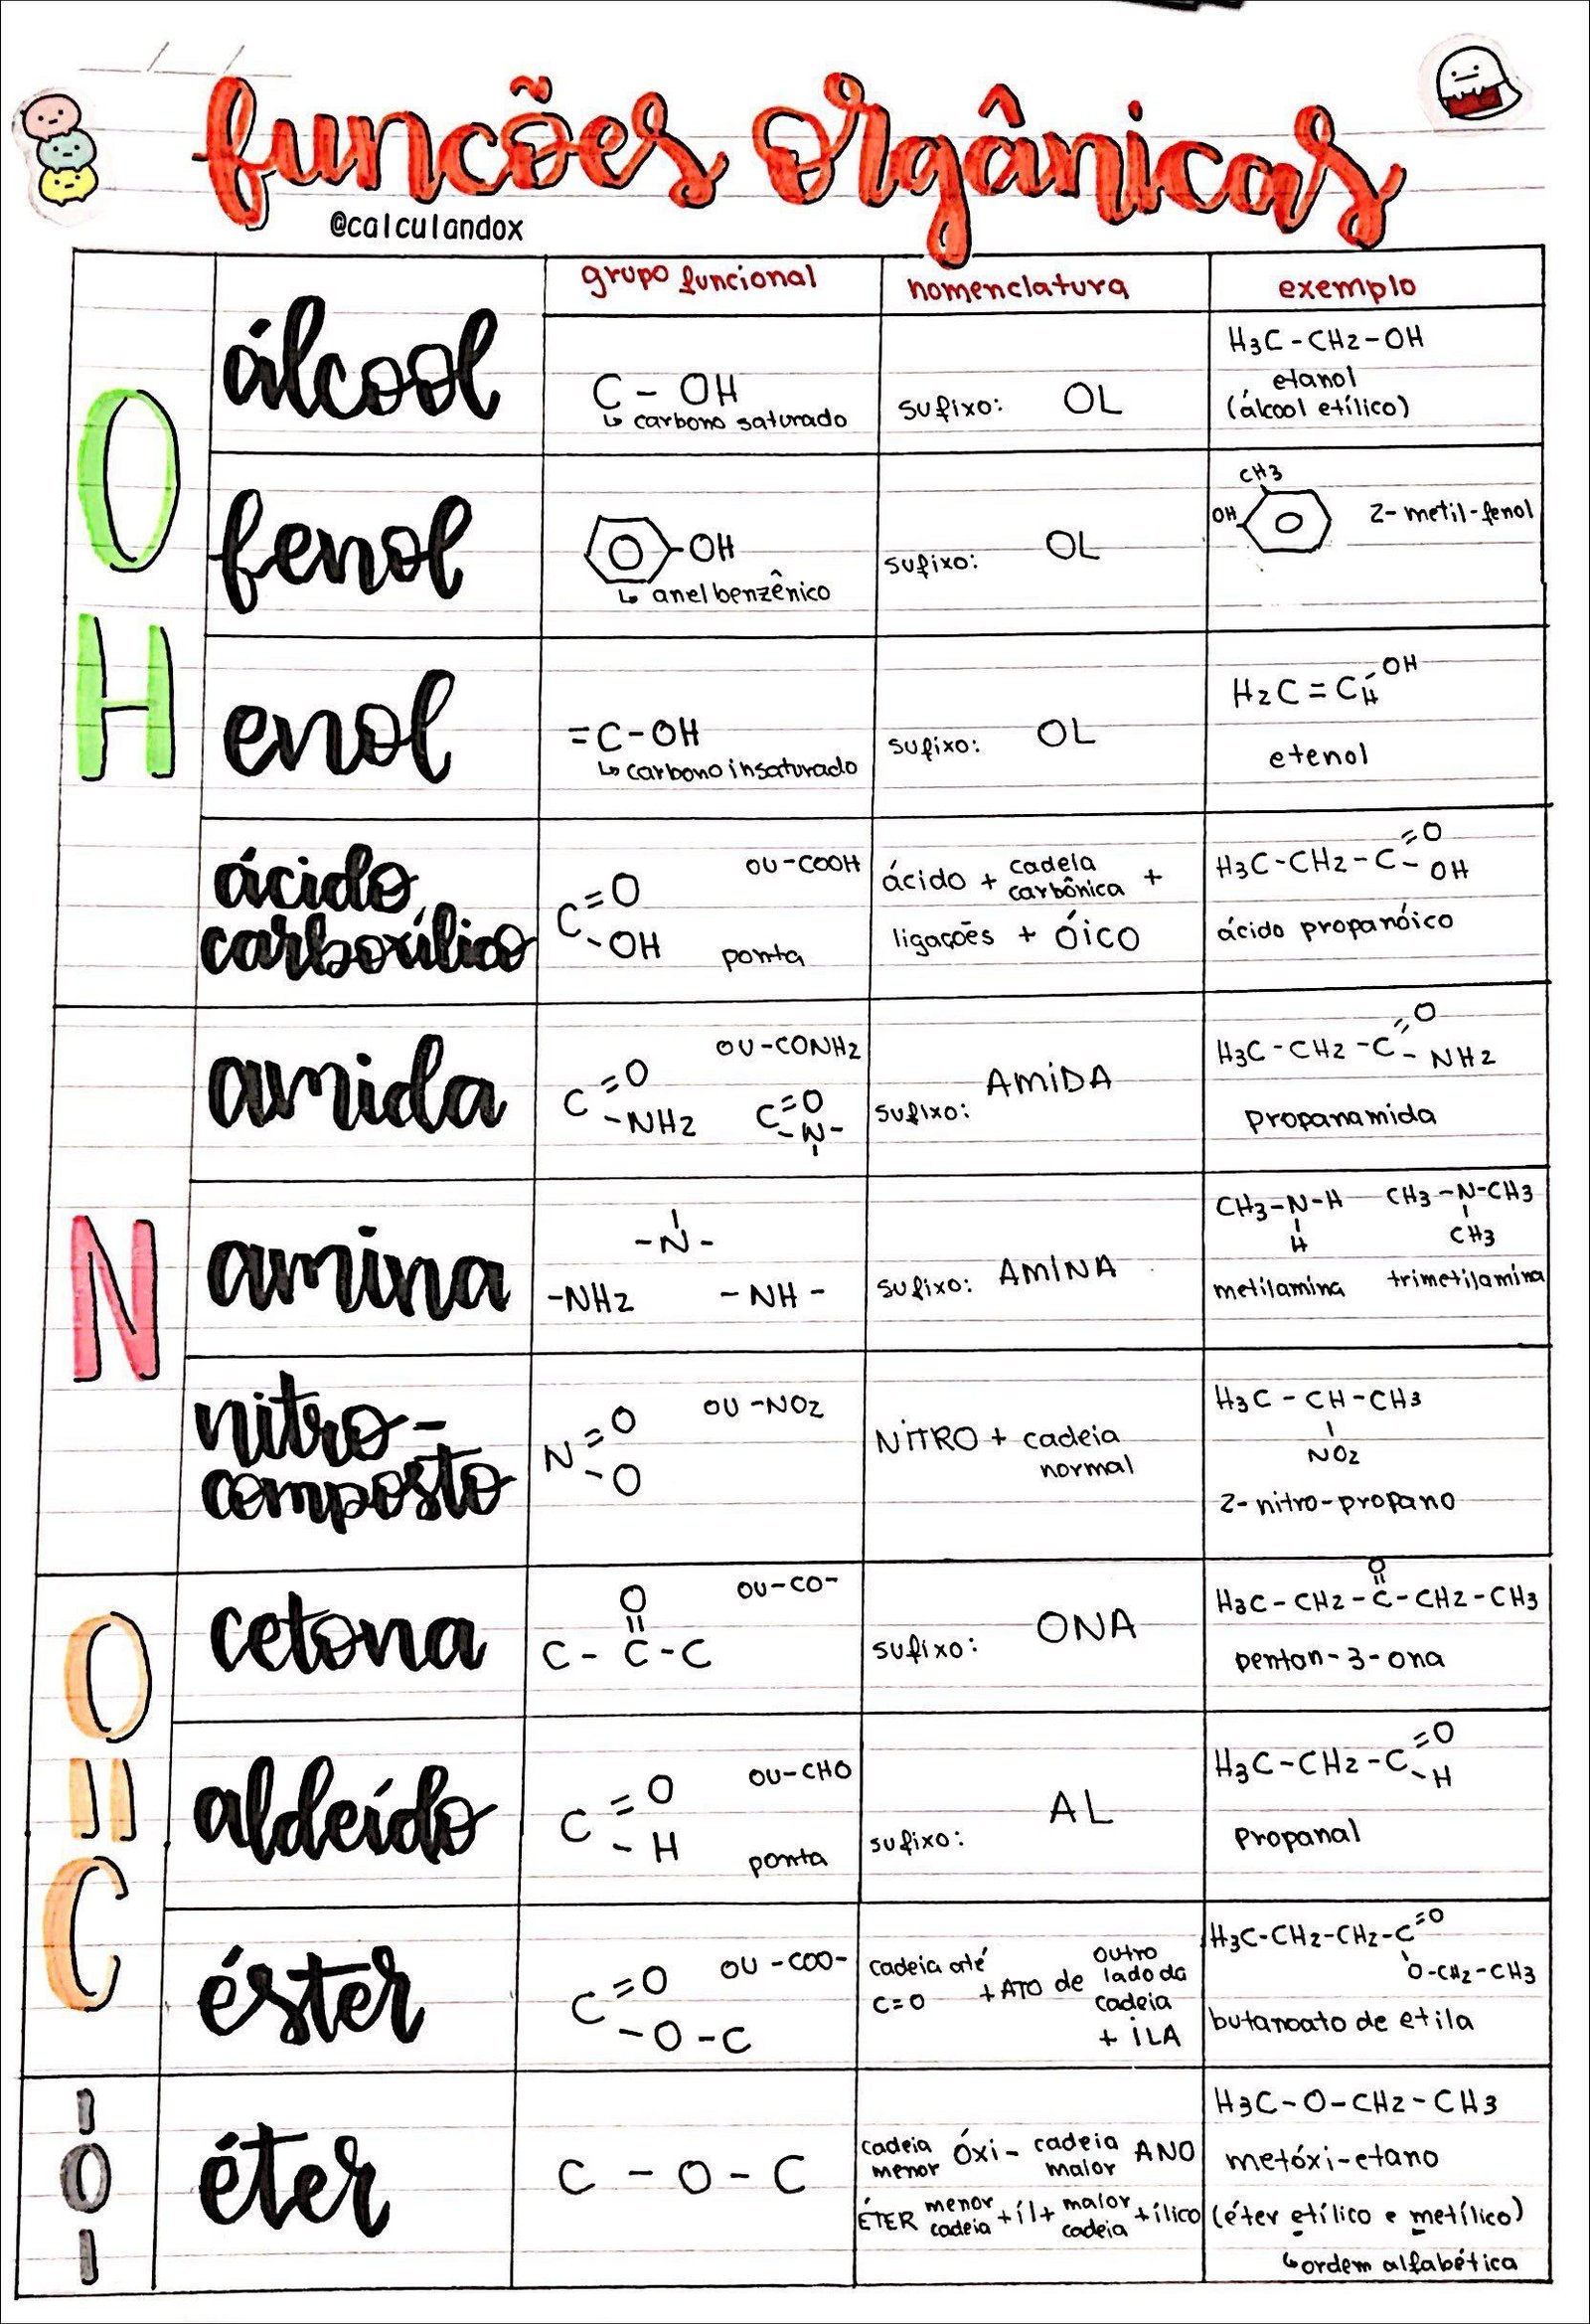 funcões orgânicas
@calculandox
grupo funcional nomenclatura exemplo
OH
álcool
C - OH
↳ carbono saturado
sufixo: OL
H3C-CH2-OH
etanol
(álcool etílico)
fenol
-OH
↳ anel benzênico
sufixo: OL
CH3
OH
2-metil-fenol
enol
=C-OH
↳ carbono insaturado
sufixo: OL
H2C=C-OH
H
etenol
ácido carboxílico
OU-COOH
C=O
-OH
ponta
ácido + cadeia carbônica +
ligações + ÓICO
H3C-CH2-C=O
-OH
ácido propanóico
N
amida
OU-CONH2
C=O
-NH2
C=O
-N-
sufixo: AMIDA
H3C-CH2-C=O
-NH2
propanamida
amina
-N-
-NH2 -NH-
sufixo: AMINA
CH3-N-H
H
CH3-N-CH3
CH3
metilamina trimetilamina
nitro-
composto
OU-NO2
N=O
-O
NITRO + cadeia
normal
H3C-CH-CH3
NO2
2-nitro-propano
O=C
cetona
OU-CO-
O
C-C-C
sufixo: ONA
O
H3C-CH2-C-CH2-CH3
pentan-3-ona
aldeído
OU-CHO
C=O
-H
ponta
sufixo: AL
H3C-CH2-C=O
-H
propanal
éster
OU-COO-
C=O
-O-C
cadeia até
C=O
+ATO de
outro
lado da
cadeia
+ ILA
H3C-CH2-CH2-C=O
O-CH2-CH3
butanoato de etila
O
éter
C-O-C
cadeia menor ÓXI- cadeia maior ANO
ÉTER menor cadeia +íl+ maior cadeia +ílico
H3C-O-CH2-CH3
metóxi-etano
(éter etílico e metílico)
↳ordem alfabética